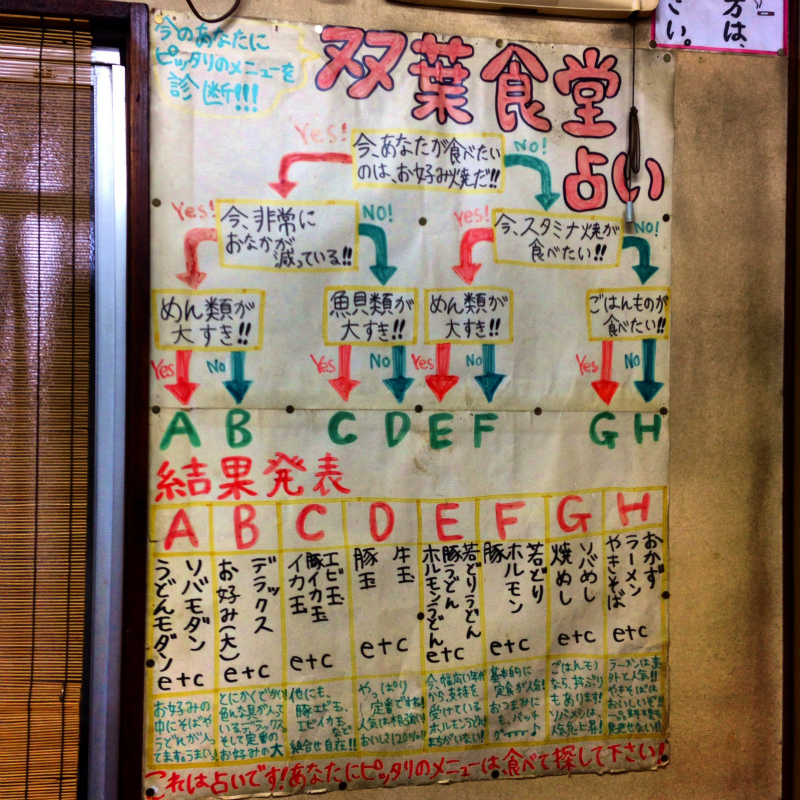 今のあなたに
ピッタリのメニューを
診断!!!
双葉食堂
占い
方は、
さい。
今、あなたが食べたい
のは、お好み焼だ!!
Yes!
NO!
今、非常に
おなかが
減っている!!
Yes!
NO!
今、スタミナ焼が
食べたい!!
Yes!
NO!
めん類が
大すき!!
魚貝類が
大すき!!
めん類が
大すき!!
ごはんものが
食べたい!!
Yes
No
Yes
No
Yes
No
Yes
No
A B C D E F G H
結果発表
A
ソバモダン
うどんモダン
etc
お好みの
中にそばや
うどんが入っ
てます。うまい!
B
デラックス
お好み(大)
etc
とにかくでかい
色んな具が入って
いるデラックス
そして定番の
お好みの大
C
エビ玉
豚イカ玉
イカ玉
etc
他にも、
豚エビ玉、
エビイカ玉
など
組合せ自在!!
D
牛玉
豚玉
etc
やっぱり
定番ですね!
人気は根強い
おいしさ120%!!
E
若どりうどん
豚うどん
ホルモンうどん
etc
今、幅広い年代
から、支持を
受けている
ホルモンうどん
まちがいない!
F
若どり
ホルモン
豚
etc
基本的に
定食が人気!
おつまみに
も、バッチ
グー
G
ソバめし
焼めし
etc
ごはんもの
なら、丼ぶり
もあります!
ソバメシは、
人気上昇!
H
おかず
ラーメン
やきそば
etc
ラーメンは意
外と人気!!
やきそばは
おいしいぞ!!
これは占いです!あなたにピッタリのメニューは、食べて探して下さい!!